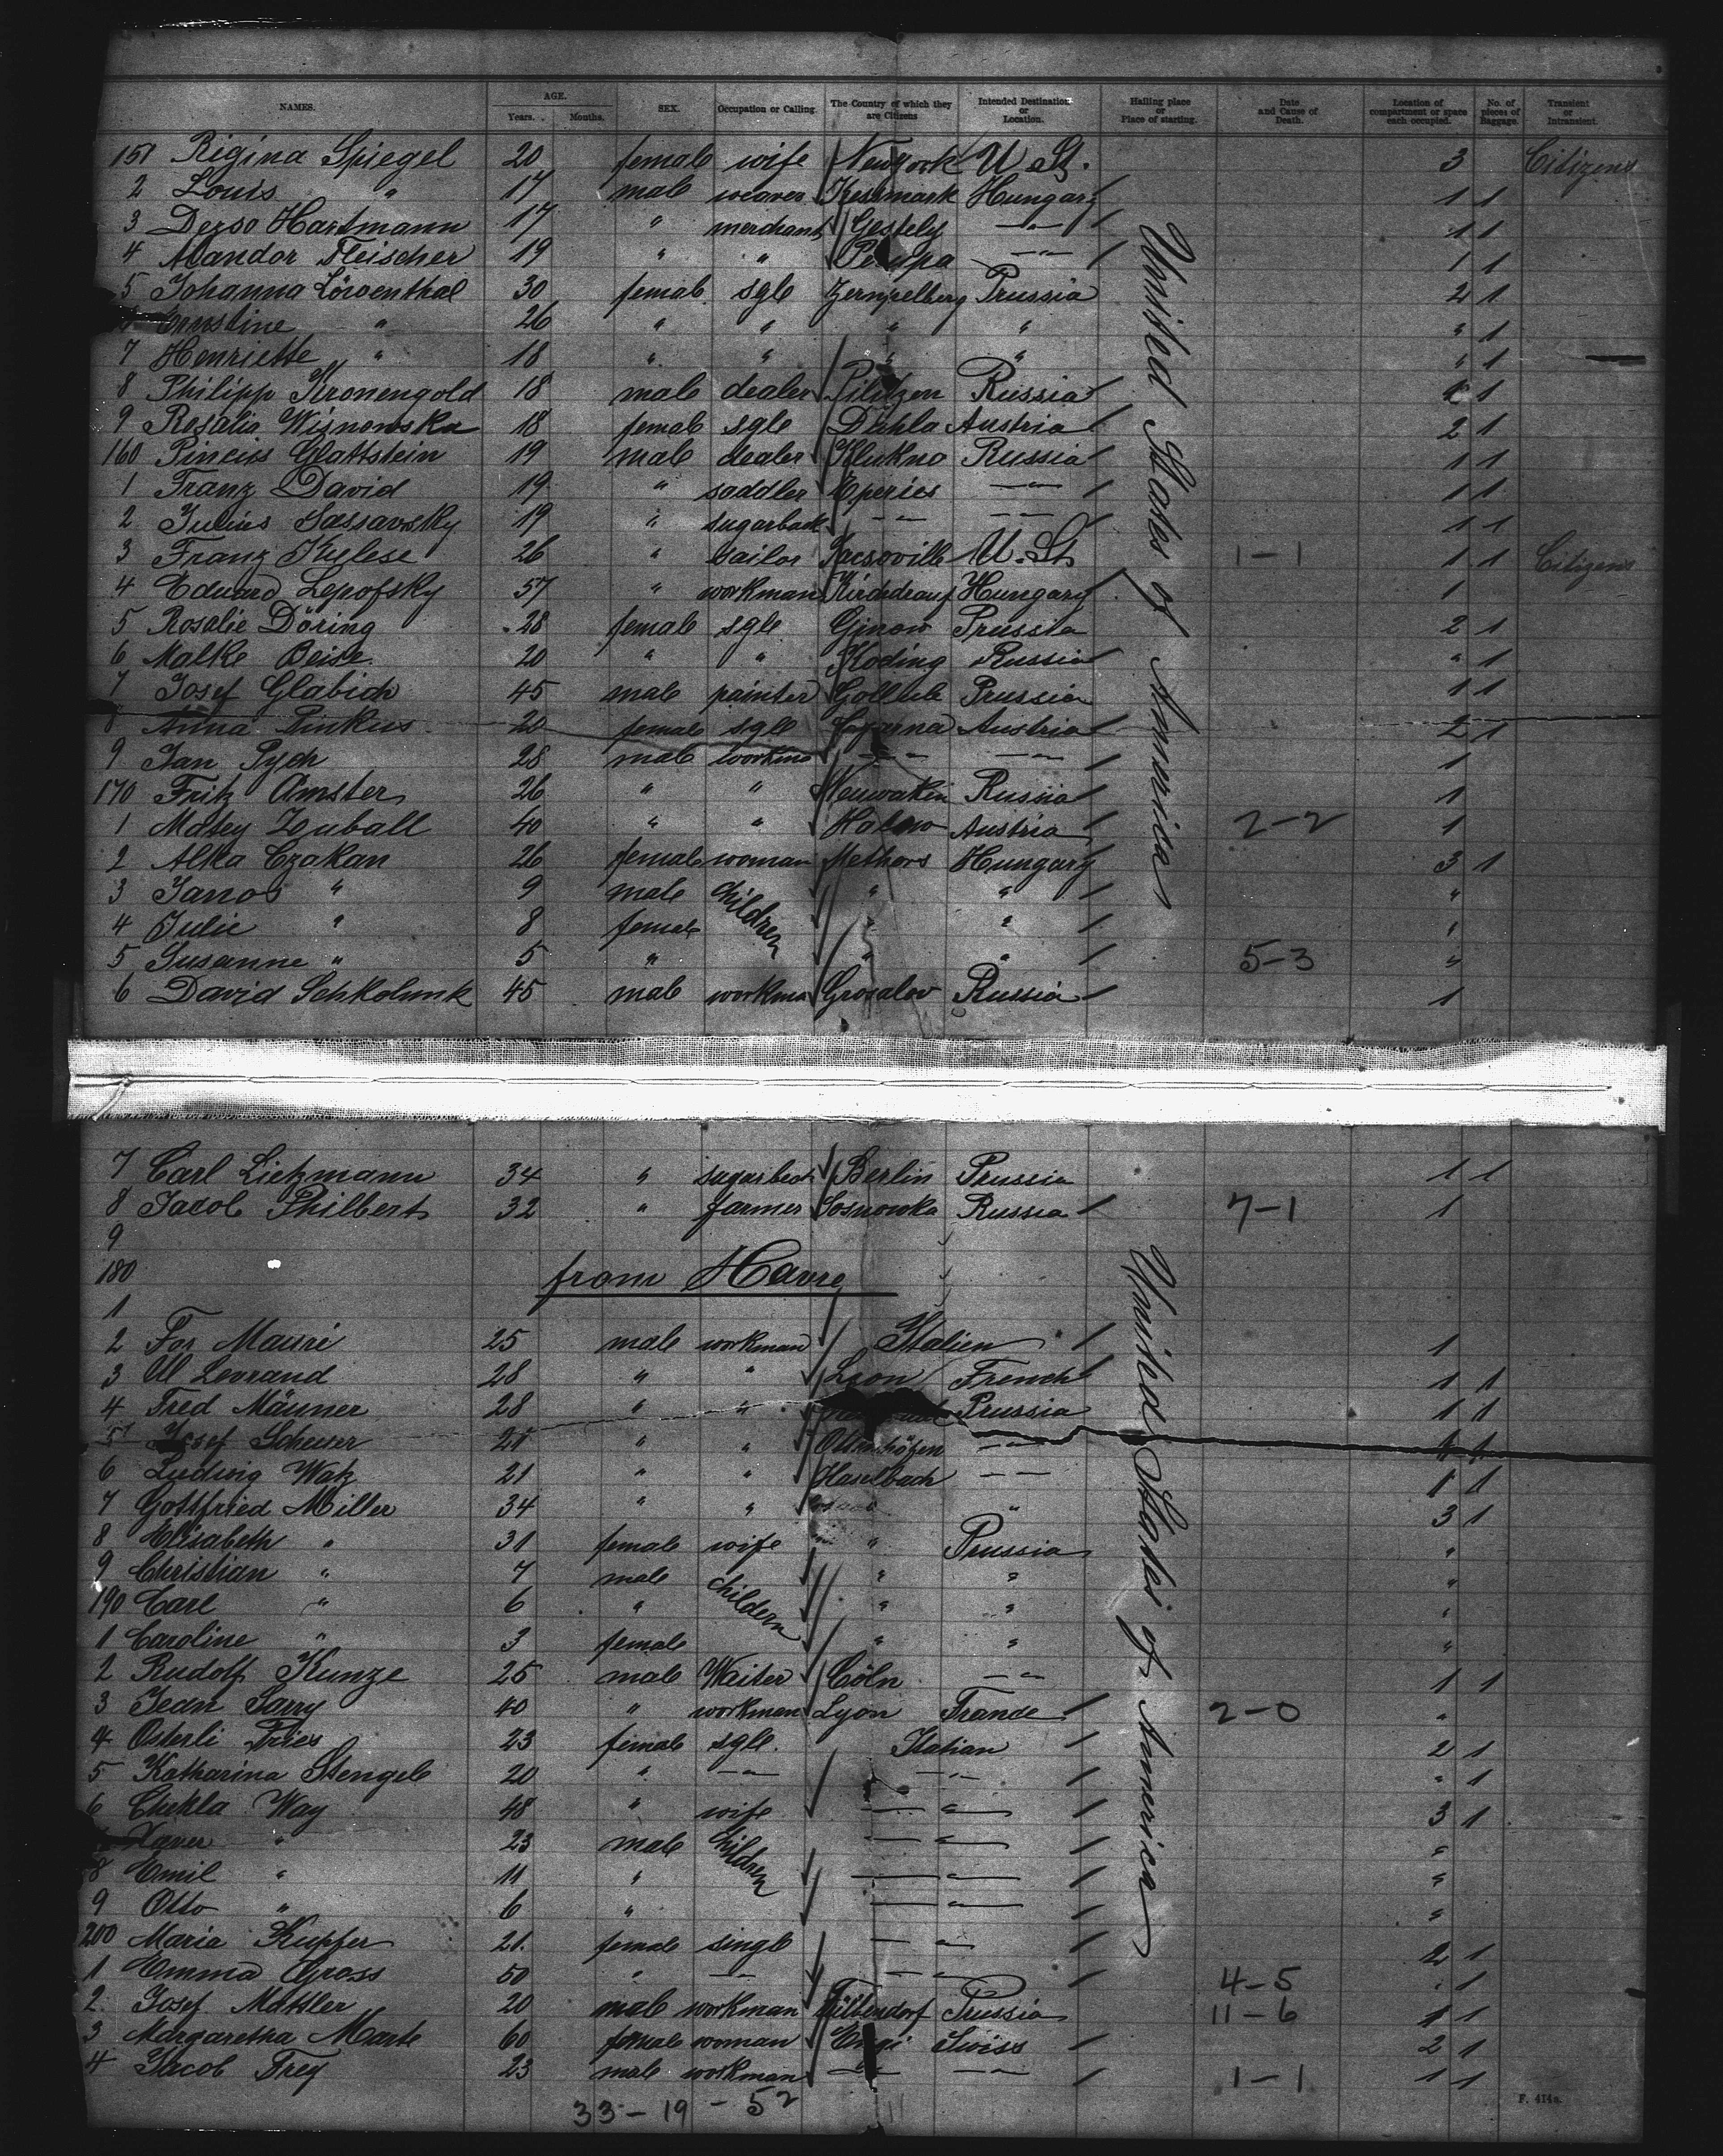 NAMES. AGE. Years. Months. SEX. Occupation or Calling. The Country of which they are Citizens Intended Destination or Location. Hailing place or Place of starting. Date and Cause of Death. Location of compartment or space each occupied. No. of pieces of Baggage. Transient or Intransient.
151 Rigina Spiegel 20 female wife Newyork U. St. 3 Citizens
2 Louis " 17 male weaver Kessmark Hungary 1 1
3 Dezso Hartmann 17 " merchant Gestely —"— 1 1
4 Mandor Fleischer 19 " " —"— 1 1
5 Johanna Löwenthal 30 female sgle Zempelberg Prussia 2 1
Ernstine " 26 " " " " " 1
7 Henriette " 18 " " " " " 1
8 Philipp Kronengold 18 male dealer Pilitzen Russia 1 1
9 Rosalia Wisnowska 18 female sgle Dukla Austria 2 1
160 Pincus Glattstein 19 male dealer Klukno Russia 1 1
1 Franz David 19 " saddler Eperies —"— 1 1
2 Julius Sassawsky 19 " sugarback —"— —"— 1 1
3 Franz Kielese 26 " tailor U. St. 1-1 1 1 Citizens
4 Eduard Lepofsky 57 " workman Hungary 1
5 Rosalie Döring 28 female sgle Ginow Prussia 2 1
6 Malke Beise 20 " " Koding Russia " 1
7 Josef Glabich 45 male painter Gollub Prussia 1 1
8 Anna Pinkus 20 female sgle Austria 2 1
9 Jan Pych 28 male workma —"— —"— 1
170 Fritz Amster 26 " " Neuwakin Russia 1
1 Matey Zuball 40 " " Austria 2-2 1
2 Alka Czakan 26 female woman Methers Hungary 3 1
3 Janos " 9 male children " " "
4 Julie " 8 female " " "
5 Susanne " 5 " " " 5-3 "
6 David Schkolnik 45 male workma Grosalov Russia 1
United States of America
7 Carl Lietzmann 34 " sugarbeck Berlin Prussia 1 1
8 Jacob Philbert 32 " farmer Sosnowka Russia 7-1 1
9
180 from Havre
1
2 For Mauri 25 male workman Italien 1
3 Ul Levrand 28 " " Lyon French 1 1
4 Fred Männer 28 " " Prussia 1 1
5 Josef Scheuer 21 " " —"— 1 1
6 Ludwig Watz 21 " " Haselbach —"— 1 1
7 Gottfried Miller 34 " " " 3 1
8 Elisabeth " 31 female wife " Prussia "
9 Christian " 7 male childern " " "
190 Carl " 6 " " " "
1 Caroline " 3 female " " "
2 Rudolf Kunze 25 male Waiter Cöln —"— 1 1
3 Jean Sarry 40 " workman Lyon France 2-0 "
4 Osterli Fries 23 female sgle. Italian 2 1
5 Katharina Stengele 20 " —"— —"— " 1
6 Thekla Way 48 " wife —"— 3 1
Xaver " 23 male children —"— "
8 Emil " 11 " —"— "
9 Otto " 6 " —"— "
200 Maria Kupfer 21. female single —"— 2 1
1 Emma Gross 50 " —"— —"— 4-5 " 1
2. Josef Mattler 20 male workman Prussia 11-6 1 1
3 Margaretha Marte 60 female woman Engi Swiss 2 1
4 Jacob Frey 23 male workman —"— —"— 1-1 1 1
United States of America
33 - 19 - 52
F. 414a.